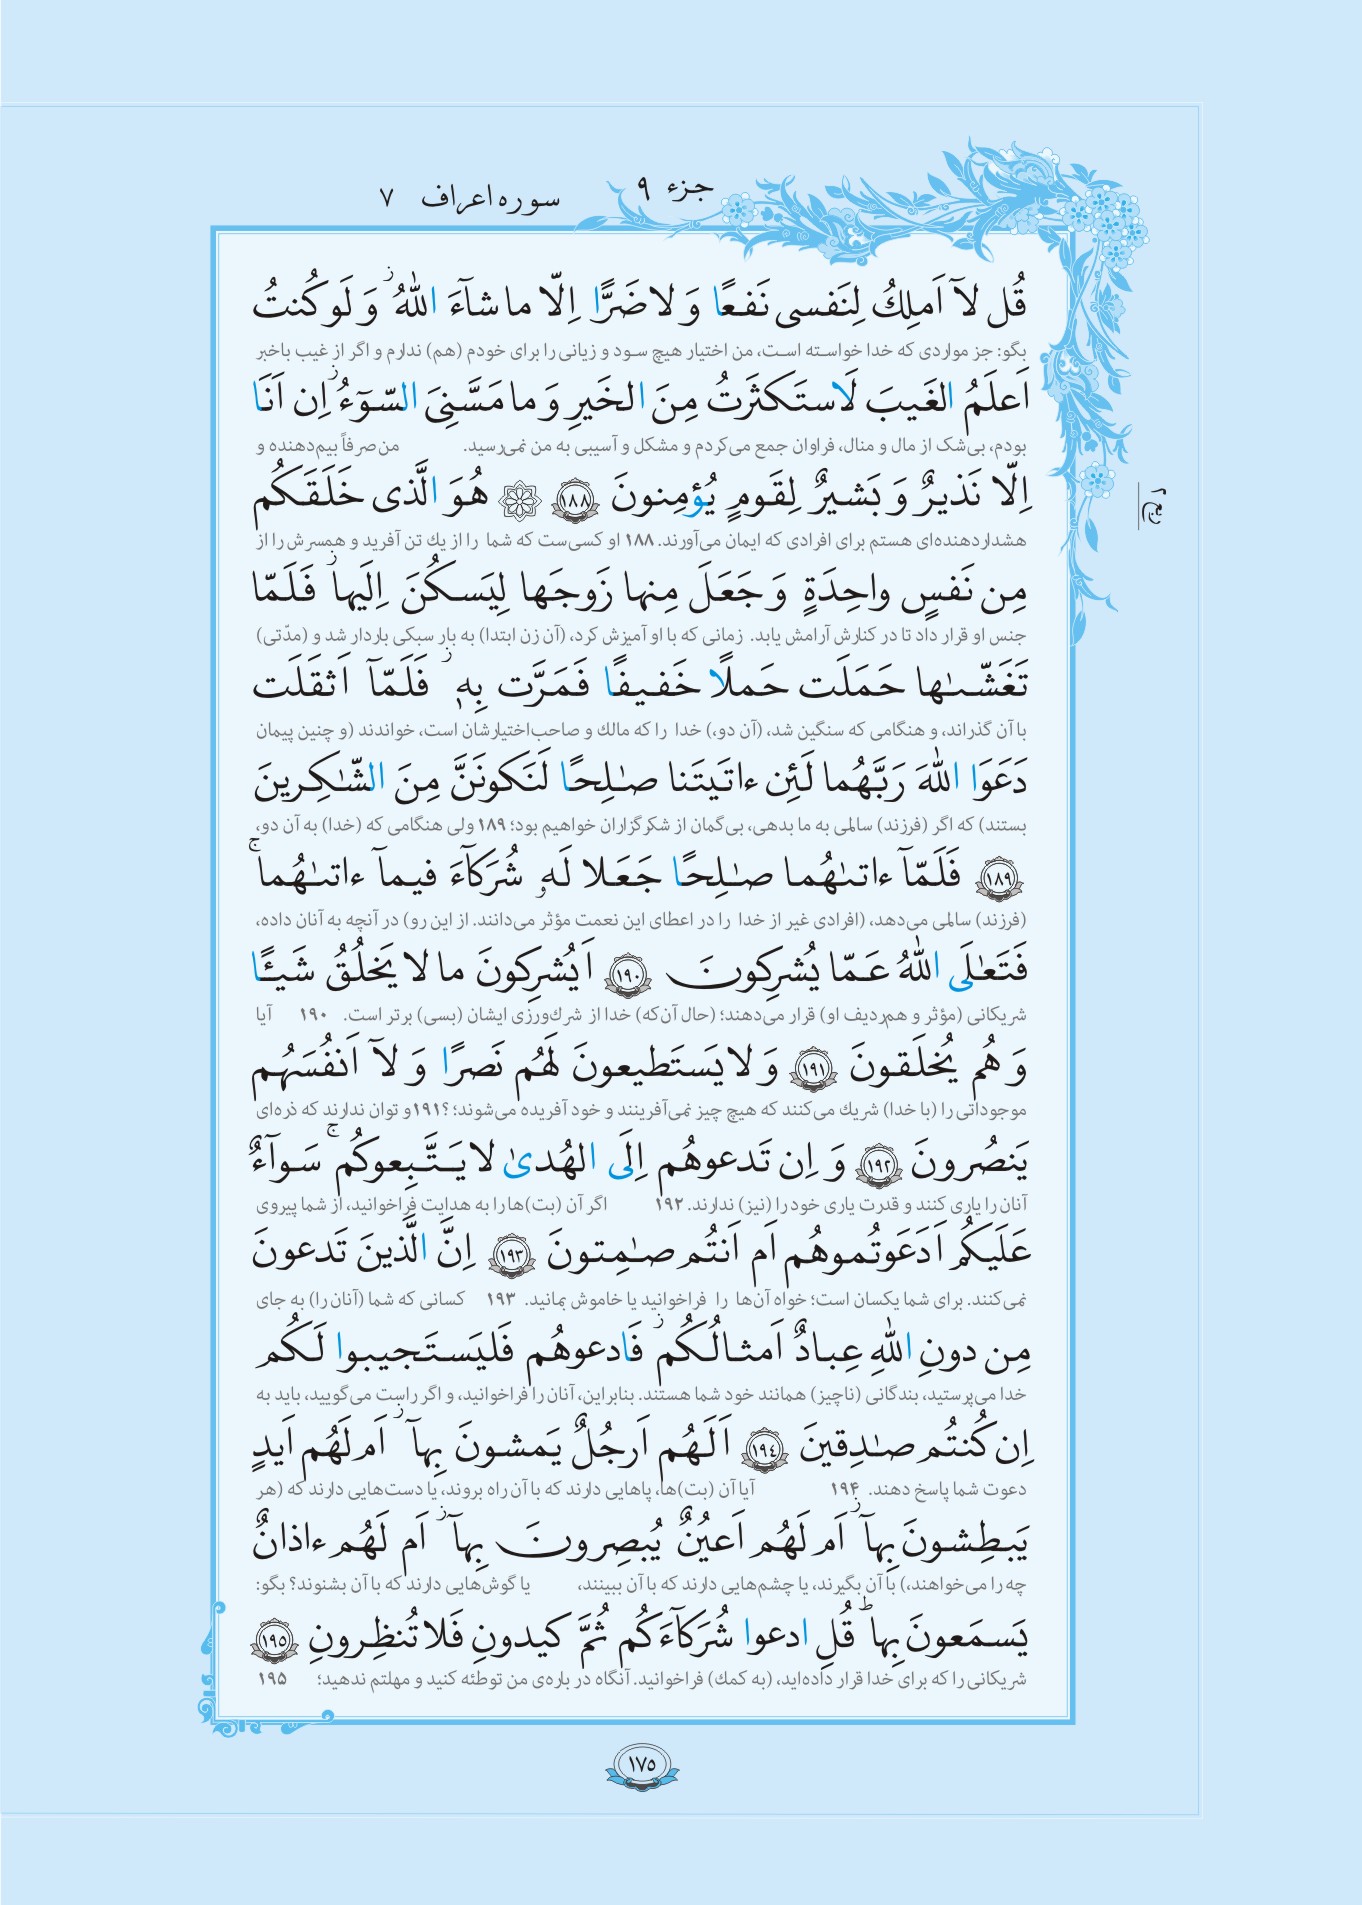 جزء ۹
سوره اعراف ۷
قُل لاۤ اَملِكُ لِنَفسی نَفعًا وَ لا ضَرًّا اِلّا ما شاۤءَ اللهُ ۚز وَ لَو كُنتُ
بگو: جز مواردی که خدا خواسته است، من اختیار هیچ سود و زیانی را برای خودم (هم) ندارم و اگر از غیب باخبر
اَعلَمُ الغَیبَ لَاستَكثَرتُ مِنَ الخَیرِ وَ ما مَسَّنِیَ السّوۤءُ ز اِن اَنَا
بودم، بی‌شک از مال و منال، فراوان جمع می‌کردم و مشکل و آسیبی به من نمی‌رسید. من صرفاً بیم‌دهنده و
اِلّا نَذیرٌ وَ بَشیرٌ لِقَومٍ یُؤمِنونَ ﴿١٨٨﴾ هُوَ الَّذی خَلَقَكُم
هشداردهنده‌ای هستم برای افرادی که ایمان می‌آورند. ۱۸۸ او کسی‌ست که شما را از یك تن آفرید و همسرش را از
ربع ۲
مِن نَفسٍ واحِدَةٍ وَ جَعَلَ مِنها زَوجَها لِیَسكُنَ اِلَیها ز فَلَمّا
جنس او قرار داد تا در کنارش آرامش یابد. زمانی که با او آمیزش کرد، (آن زن ابتدا) به بار سبکی باردار شد و (مدّتی)
تَغَشّىٰها حَمَلَت حَملًا خَفیفًا فَمَرَّت بِهٖ ز فَلَمّاۤ اَثقَلَت
با آن گذراند، و هنگامی که سنگین شد، (آن دو،) خدا را که مالك و صاحب‌اختیارشان است، خواندند (و چنین پیمان
دَعَوَا اللهَ رَبَّهُما لَئِن ءاتَیتَنا صـٰلِحًا لَنَكونَنَّ مِنَ الشّـٰكِرینَ
بستند) که اگر (فرزند) سالمی به ما بدهی، بی‌گمان از شکرگزاران خواهیم بود؛ ۱۸۹ ولی هنگامی که (خدا) به آن دو،
﴿١٨٩﴾ فَلَمّاۤ ءاتىٰهُما صـٰلِحًا جَعَلا لَهٗ شُرَكاۤءَ فیماۤ ءاتىٰهُما ج
(فرزند) سالمی می‌دهد، (افرادی غیر از خدا را در اعطای این نعمت مؤثر می‌دانند. از این رو) در آنچه به آنان داده،
فَتَعٰلَی اللهُ عَمّا یُشرِكونَ ﴿١٩٠﴾ اَیُشرِكونَ ما لا یَخلُقُ شَیئًا
شریکانی (مؤثر و هم‌ردیف او) قرار می‌دهند؛ (حال آن‌که) خدا از شرك‌ورزی ایشان (بسی) برتر است. ۱۹۰ آیا
وَ هُم یُخلَقونَ ﴿١٩١﴾ وَ لا یَستَطیعونَ لَهُم نَصرًا وَ لاۤ اَنفُسَهُم
موجوداتی را (با خدا) شریك می‌کنند که هیچ چیز نمی‌آفرینند و خود آفریده می‌شوند؛ ؟۱۹۱ و توان ندارند که ذره‌ای
یَنصُرونَ ﴿١٩٢﴾ وَ اِن تَدعوهُم اِلَی الهُدیٰ لا یَتَّبِعوكُم ج سَواۤءٌ
آنان را یاری کنند و قدرت یاری خود را (نیز) ندارند. ۱۹۲ اگر آن (بت)ها را به هدایت فراخوانید، از شما پیروی
عَلَیكُم اَدَعَوتُموهُم اَم اَنتُم صـٰمِتونَ ﴿١٩٣﴾ اِنَّ الَّذینَ تَدعونَ
نمی‌کنند. برای شما یکسان است؛ خواه آن‌ها را فراخوانید یا خاموش بمانید. ۱۹۳ کسانی که شما (آنان را) به جای
مِن دونِ اللهِ عِبادٌ اَمثالُكُم ز فَادعوهُم فَلیَستَجیبوا لَكُم
خدا می‌پرستید، بندگانی (ناچیز) همانند خود شما هستند. بنابراین، آنان را فراخوانید، و اگر راست می‌گویید، باید به
اِن كُنتُم صـٰدِقینَ ﴿١٩٤﴾ اَلَهُم اَرجُلٌ یَمشونَ بِهاۤ ز اَم لَهُم اَیدٍ
دعوت شما پاسخ دهند. ۱۹۴ آیا آن (بت)ها، پاهایی دارند که با آن راه بروند، یا دست‌هایی دارند که (هر
یَبطِشونَ بِهاۤ ز اَم لَهُم اَعیُنٌ یُبصِرونَ بِهاۤ ز اَم لَهُم ءاذانٌ
چه را می‌خواهند،) با آن بگیرند، یا چشم‌هایی دارند که با آن ببینند، یا گوش‌هایی دارند که با آن بشنوند؟ بگو:
یَسمَعونَ بِها ط قُلِ ادعوا شُرَكاۤءَكُم ثُمَّ كیدونِ فَلا تُنظِرونِ ﴿١٩٥﴾
شریکانی را که برای خدا قرار داده‌اید، (به کمك) فراخوانید. آنگاه در باره‌ی من توطئه کنید و مهلتم ندهید؛ ۱۹۵
١٧٥